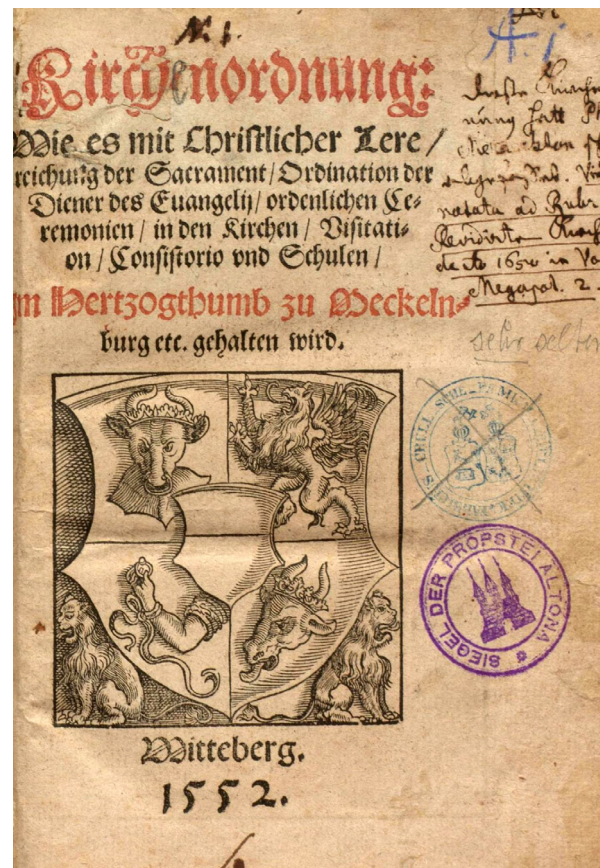 N. 1.
A. i
Kirchenordnung:
Wie es mit Christlicher Lere /
reichung der Sacrament / Ordination der
Diener des Euangelij / ordenlichen Ce-
remonien / in den Kirchen / Visitati-
on / Consistorio vnd Schulen /
m Hertzogthumb zu Meckeln-
burg etc. gehalten wird.
hatt
ad
Revidirte
1650 in
Megapol. 2.
sehr selten
SIEGEL DER PROPSTEI ALTONA
Witteberg.
1552.